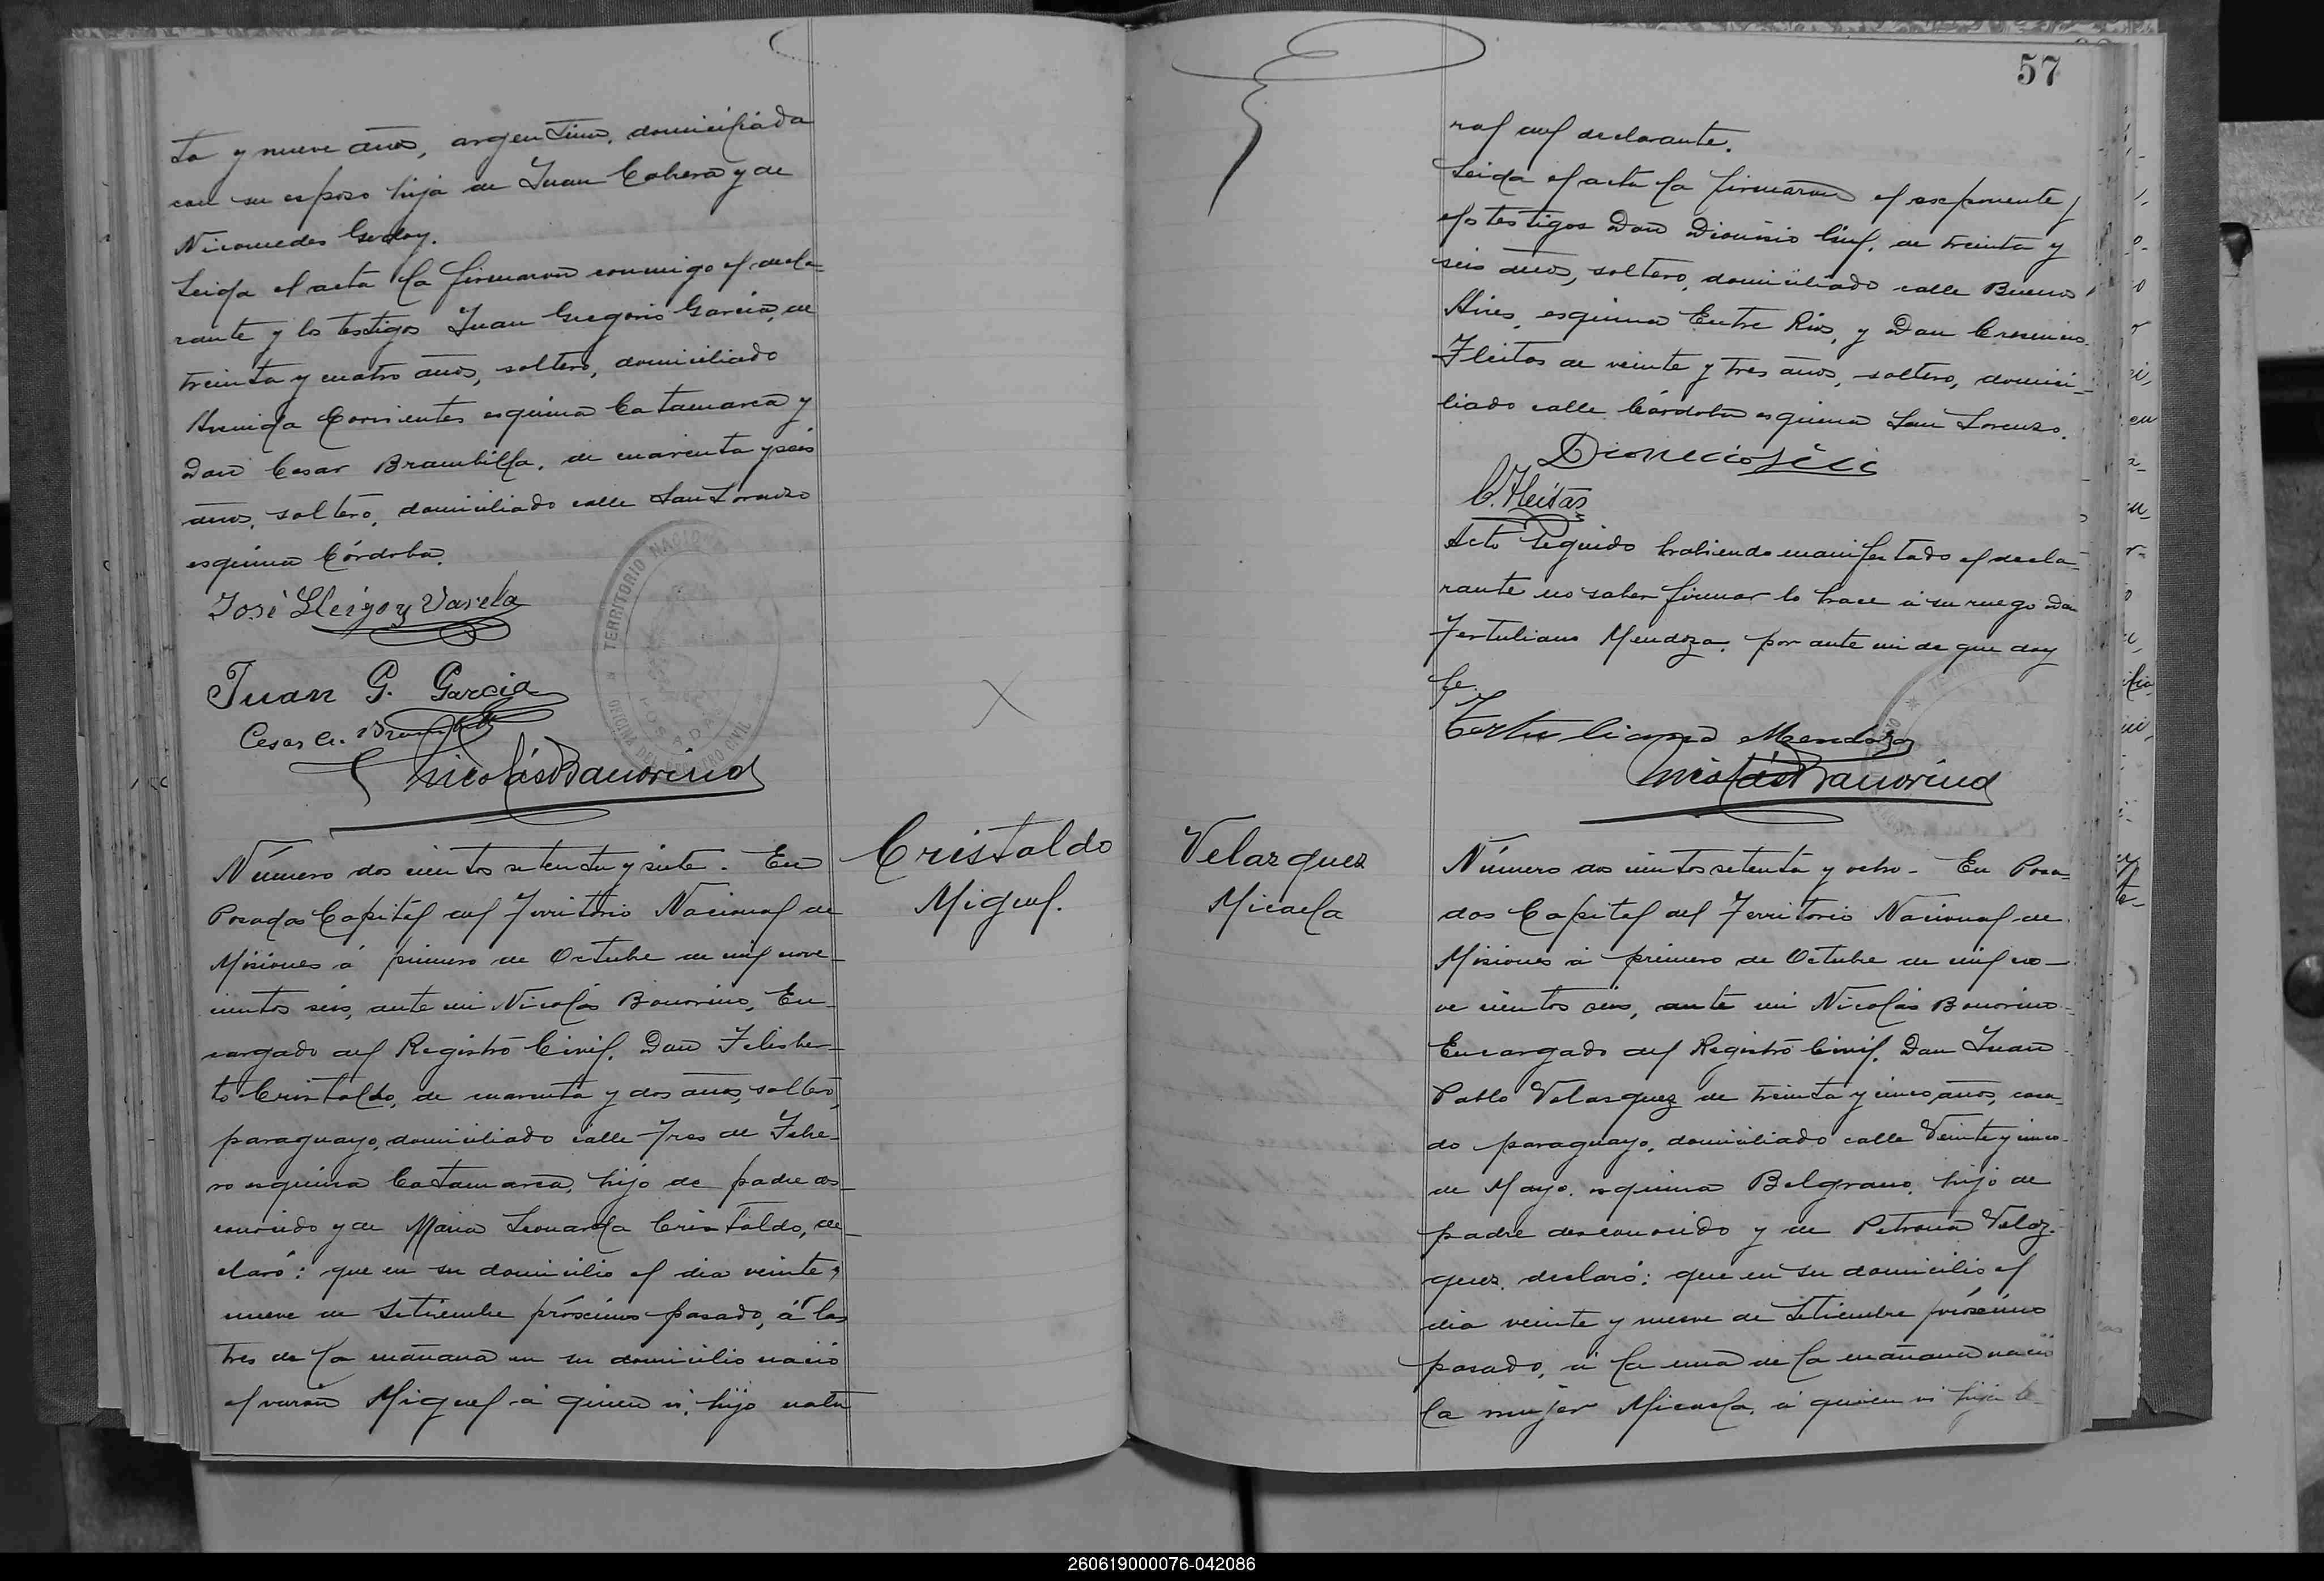 ta y nueve años, argentina, domiciliada
con su esposo hija de Juan Cabrera y de
Nicomedes Godoy.
Leida el acta la firmaron conmigo el decla-
rante y los testigos Juan Gregorio Garcia, de
treinta y cuatro años, soltero, domiciliado
Avenida Corrientes esquina Catamarca y
Don Cesar Brambilla, de cuarenta y seis
años, soltero, domiciliado calle San Lorenzo
esquina Córdoba.
José Lleigo y Varela
TERRITORIO NACIONAL
POSADAS
OFICINA DEL REGISTRO CIVIL
Juan G. Garcia
Cesar
Nicolás Bonorino
Cristaldo
Miguel.
Número dos cientos setenta y siete. En
Posadas Capital del Territorio Nacional de
Misiones á primero de Octubre de mil nove-
cientos seis, ante mi Nicolás Bonorino, En-
cargado del Registro Civil, Don Felisber-
to Cristaldo, de cuarenta y dos años, soltero,
paraguayo, domiciliado calle Tres de Febre-
ro esquina Catamarca, hijo de padre des-
conocido y de Maria Leonarda Cristaldo, de-
claró: que en su domicilio el dia veinte y
nueve de Setiembre próximo pasado, á las
tres de la mañana en su domicilio nació
el varón Miguel á quien vi, hijo natu
57
ral del declarante.
Leida el acta la firmaron el exponente y
los testigos Don Dionisio de treinta y
seis años, soltero, domiciliado calle Buenos
Aires, esquina Entre Rios, y Don Cresencio
Fleitas de veinte y tres años, soltero, domici-
liado calle Córdoba esquina San Lorenzo.
Dionicio
C. Fleitas
Acto seguido habiendo manifestado el decla-
rante no saber firmar lo hace á su ruego Don
Tertuliano Mendoza, por ante mi de que doy
fe.
Tertuliano Mendoza
Nicolás Bonorino
Velazquez
Micaela
Número dos cientos setenta y ocho - En Posa-
das Capital del Territorio Nacional de
Misiones á primero de Octubre de mil no-
ve cientos seis, ante mi Nicolás Bonorino
Encargado del Registro Civil, Don Juan
Pablo Velasquez de treinta y cinco años, casa-
do paraguayo, domiciliado calle Veinte y cinco
de Mayo, esquina Belgrano, hijo de
padre desconocido y de Petrona Velaz-
quez, declaró: que en su domicilio el
dia veinte y nueve de Setiembre próximo
pasado, á la una de la mañana nació
la mujer Micaela, á quien vi hija le-
260619000076-042086